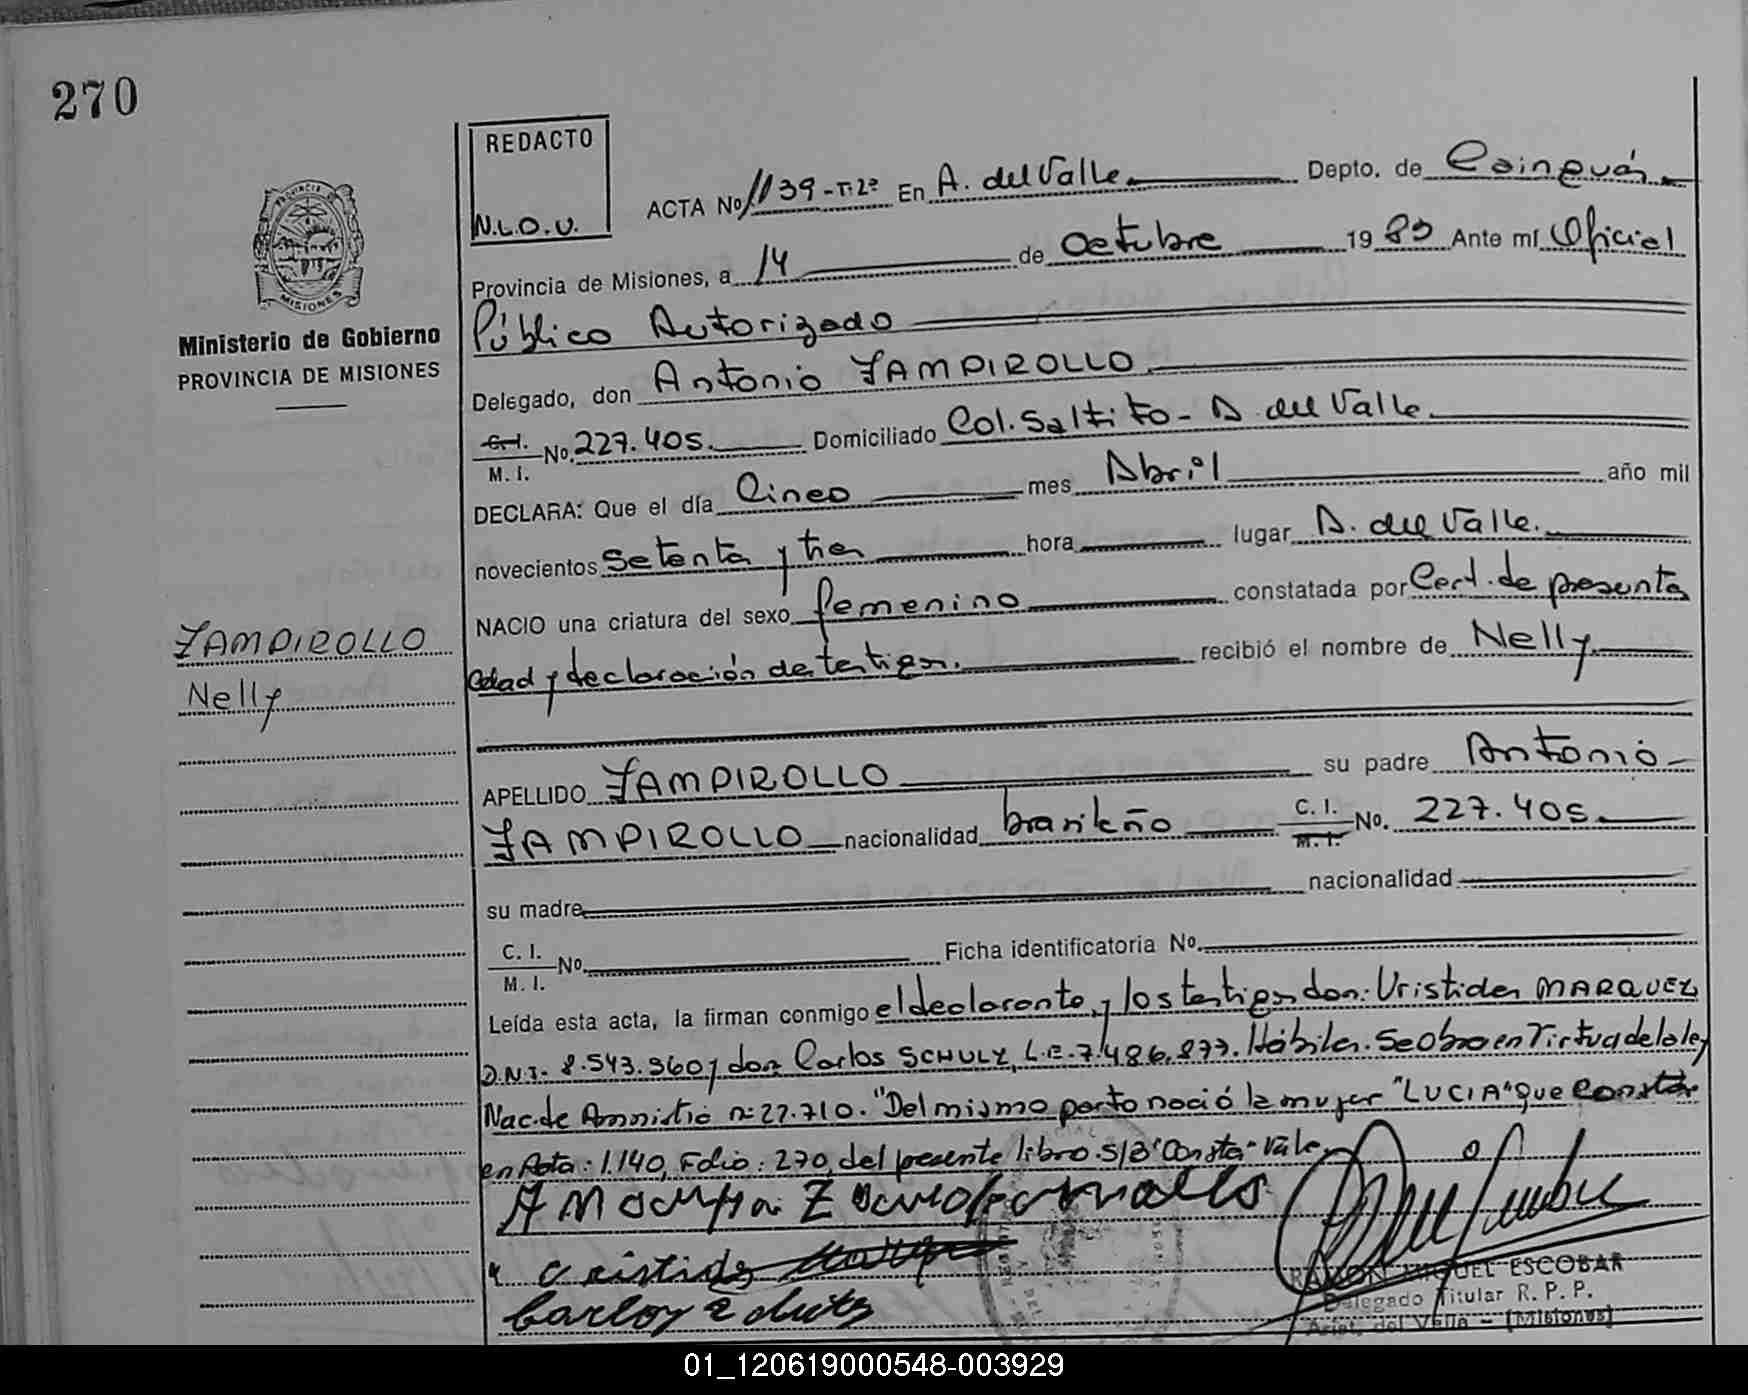 270
REDACTO
N.L.O.U.
PROVINCIA
MISIONES
Ministerio de Gobierno
PROVINCIA DE MISIONES
ACTA No 1139-Tº2º En A. del Valle Depto. de Cainguás
Provincia de Misiones, a 14 de Octubre 19 83 Ante mí Oficial
Público Autorizado
Delegado, don Antonio ZAMPIROLLO
C. I. M. I. No. 227.405. Domiciliado Col. Saltito - A. del Valle.
DECLARA: Que el día Cinco mes Abril año mil
novecientos Setenta y tres hora lugar A. del Valle.
NACIO una criatura del sexo femenino constatada por Cert. de presunta
edad y declaración de testigos. recibió el nombre de Nelly
ZAMPIROLLO
Nelly
APELLIDO ZAMPIROLLO su padre Antonio
ZAMPIROLLO nacionalidad brasileño C. I. M. I. No. 227.405.
su madre nacionalidad
C. I. M. I. No. Ficha identificatoria No.
Leída esta acta, la firman conmigo el declarante y los testigos don: Aristides MARQUEZ
D.N.I. 8.543.960 y don Carlos SCHULZ, L.E. 7.486.873. Hábiles. Se obra en Virtud de la ley
Nac. de Amnistía nº 22.710. "Del mismo parto nació la mujer "LUCIA" que Consta
en Acta: 1.140, Folio: 270, del presente libro. S/B "Consta" Vale
RAMON MIGUEL ESCOBAR
Delegado Titular R. P. P.
Arist. del Valle - (Misiones)
01_120619000548-003929